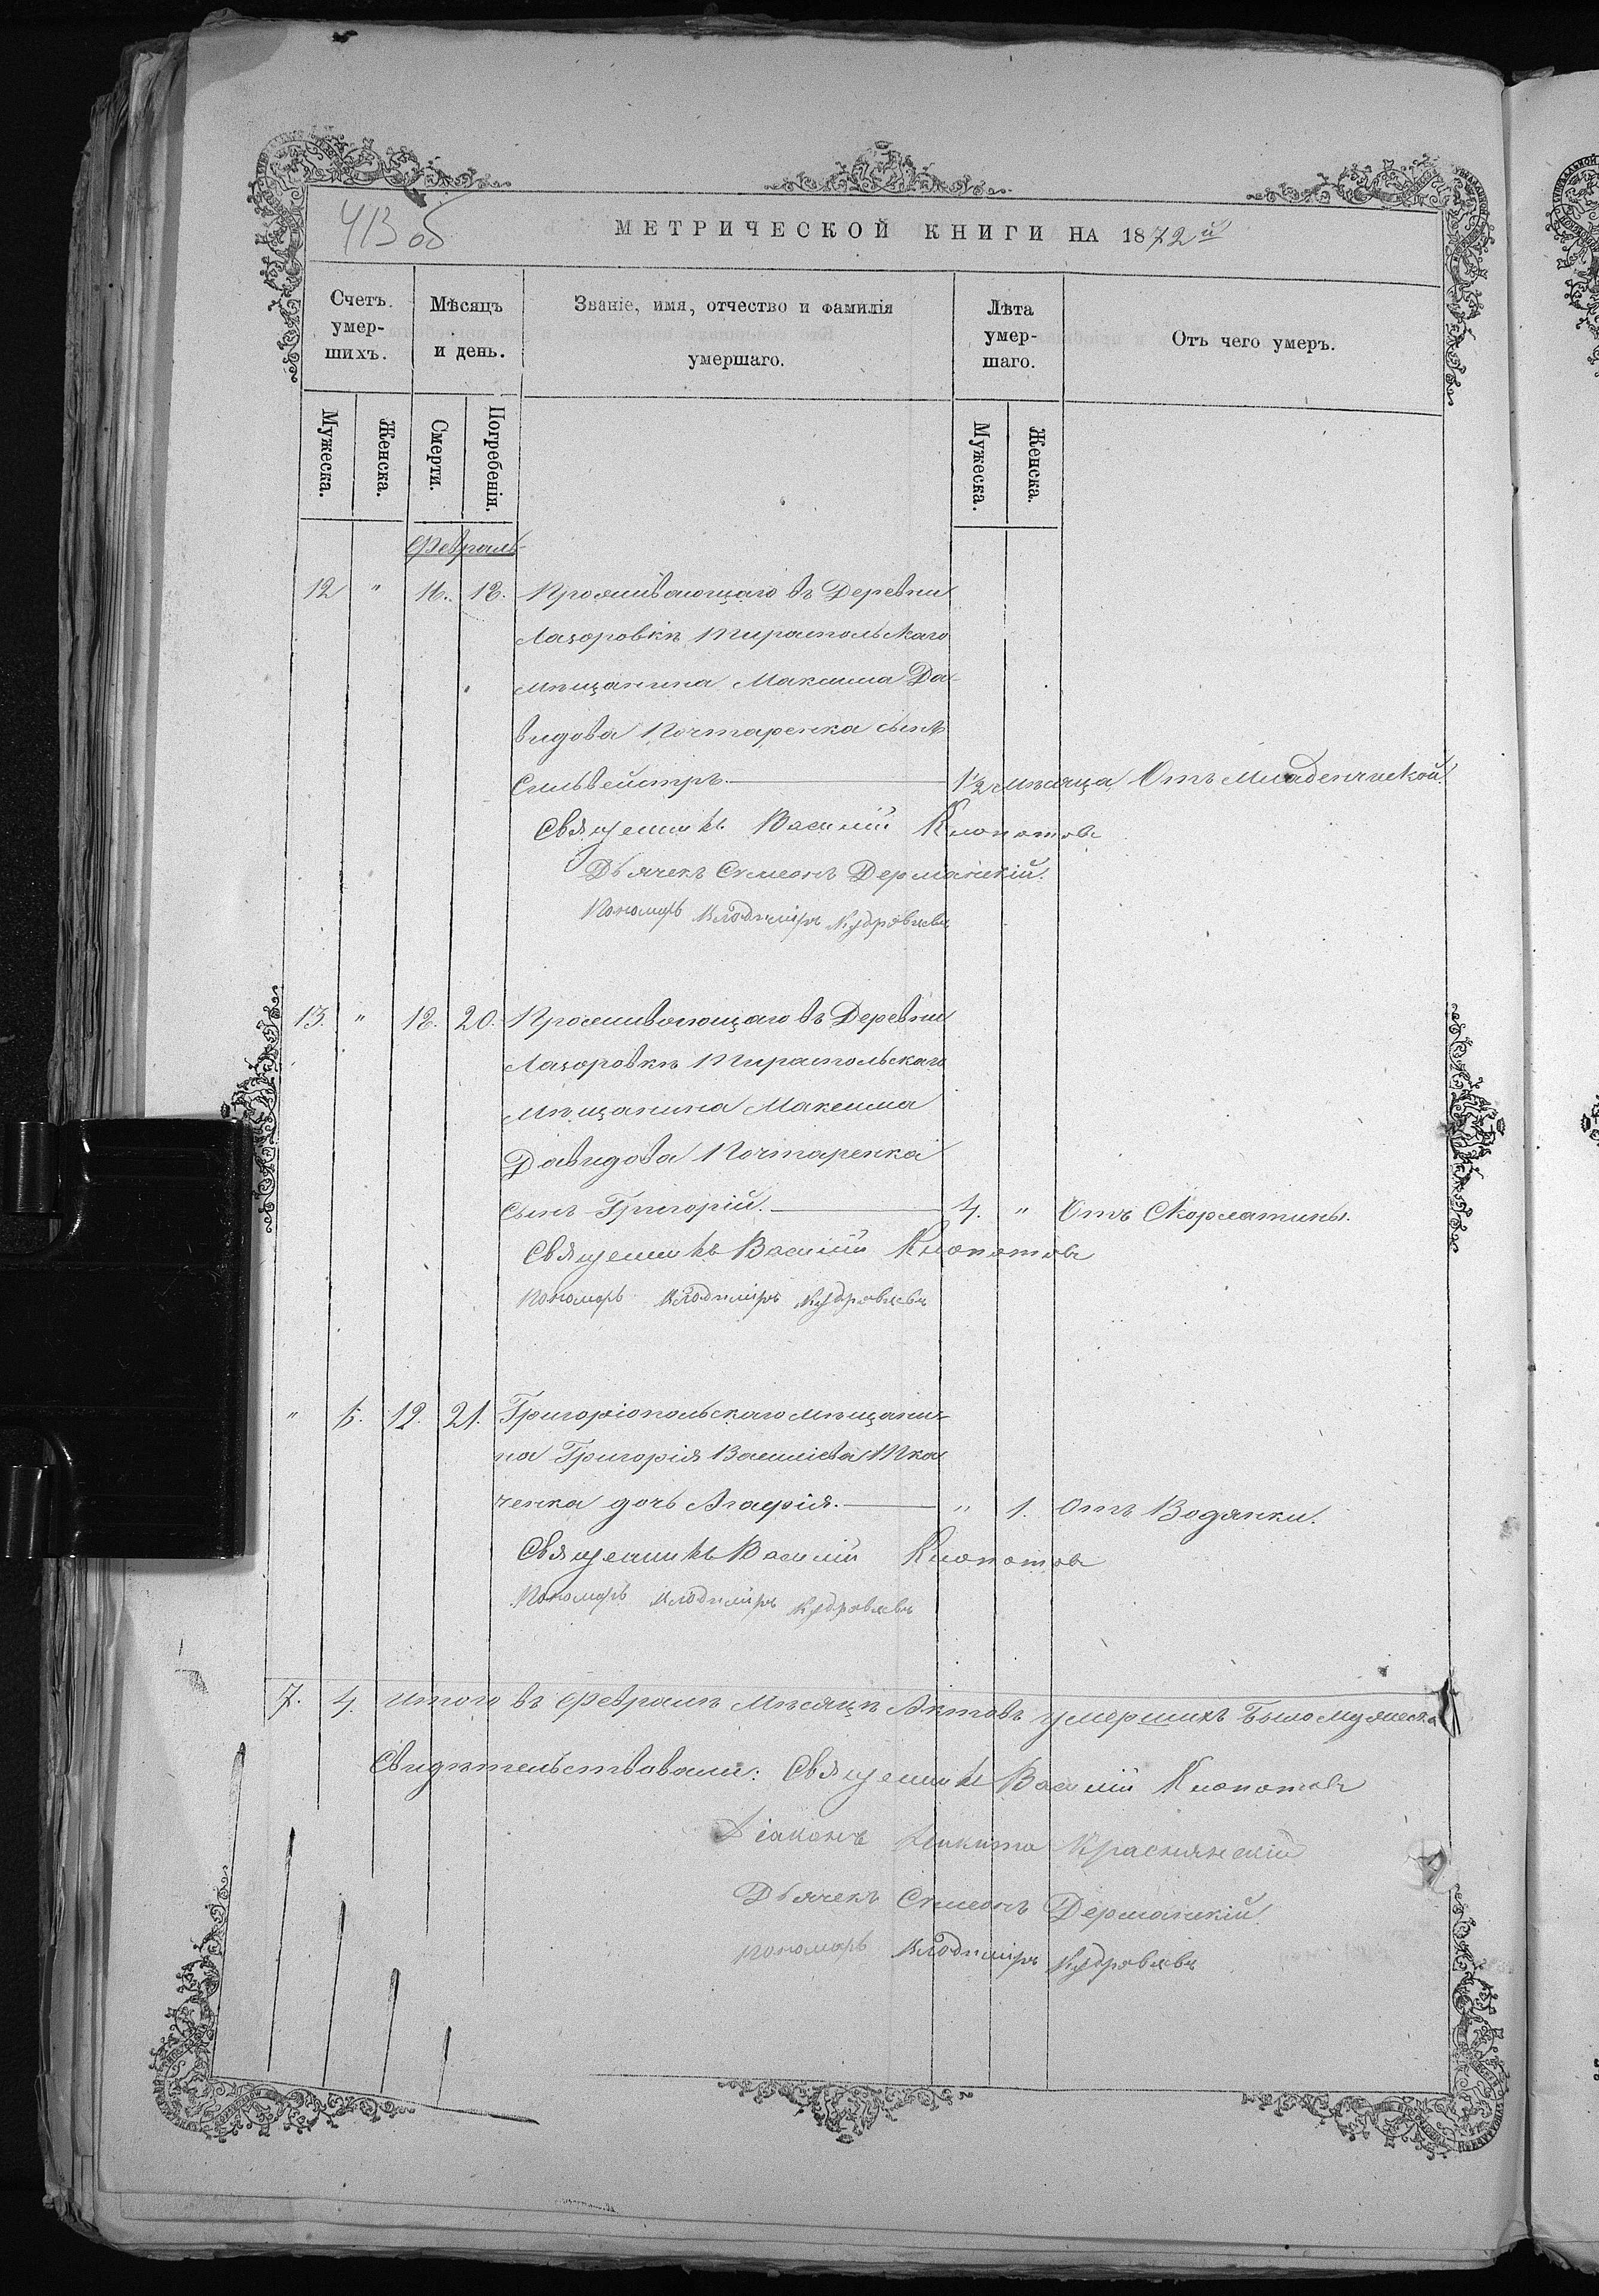 413 об
МЕТРИЧЕСКОЙ КНИГИ НА 1872й
Счетъ умер-шихъ.
Мѣсяцъ и день.
Званіе, имя, отчество и фамилія умершаго.
Лѣта умер-шаго.
Отъ чего умеръ.
Мужеска.
Женска.
Смерти.
Погребенія.
Мужеска.
Женска.
Февраль
12 " 16. 18. Проживающаго въ Деревни
Лазоровкѣ Тираспольскаго
мѣщанина Максима Да-
видова Почтаренка сынъ
Сильвестръ. 1½ мѣсяца Отъ Младенческой.
Священникъ Василій Клопотовъ
Дьячекъ Симеонъ Дерманскій.
Пономарь Владиміръ Кудрявцевъ
13. " 18. 20. Проживающаго въ Деревни
Лазоровкѣ Тираспольскаго
мѣщанина Максима
Давидова Почтаренка
сынъ Григорій. 4. " Отъ Скорлатины.
Священникъ Василій Клопотовъ
Пономарь Владиміръ Кудрявцевъ
" 19. 21. Григоріопольскаго мѣщани-
на Григорія Василіева Тка-
ченка дочь Агафія. " 1. Отъ Водянки.
Священникъ Василій Клопотовъ
Пономарь Владиміръ Кудрявцевъ
7. 4. Итого въ Февралѣ Мѣсяцѣ Актовъ умершихъ Было мужеска
Свидѣтельствовали: Священникъ Василій Клопотовъ
Діаконъ Никита Краснянскій
Дьячекъ Симеонъ Дерманскій.
Пономарь Владиміръ Кудрявцевъ